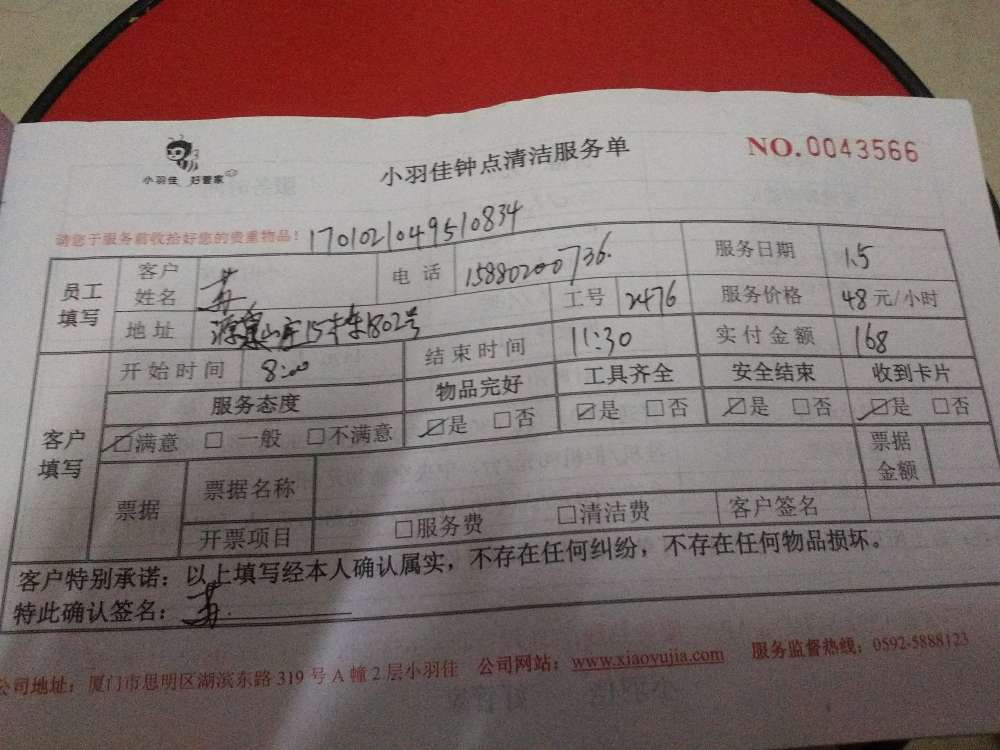 小羽佳 好管家
小羽佳钟点清洁服务单
NO.0043566
请您于服务前收拾好您的贵重物品!
1701021049510834
员工填写 客户姓名 苏 电话 15880200736. 服务日期 1.5
地址 源泉山庄15栋1802号 工号 2476 服务价格 48元/小时
客户填写 开始时间 8:00 结束时间 11:30 实付金额 168
服务态度 物品完好 工具齐全 安全结束 收到卡片
☑满意 □一般 □不满意 ☑是 □否 ☑是 □否 ☑是 □否 ☑是 □否
票据 票据名称 票据金额
开票项目 □服务费 □清洁费 客户签名
客户特别承诺:以上填写经本人确认属实,不存在任何纠纷,不存在任何物品损坏。
特此确认签名:苏
公司地址:厦门市思明区湖滨东路319号A幢2层小羽佳 公司网站:www.xiaoyujia.com 服务监督热线:0592-5888123